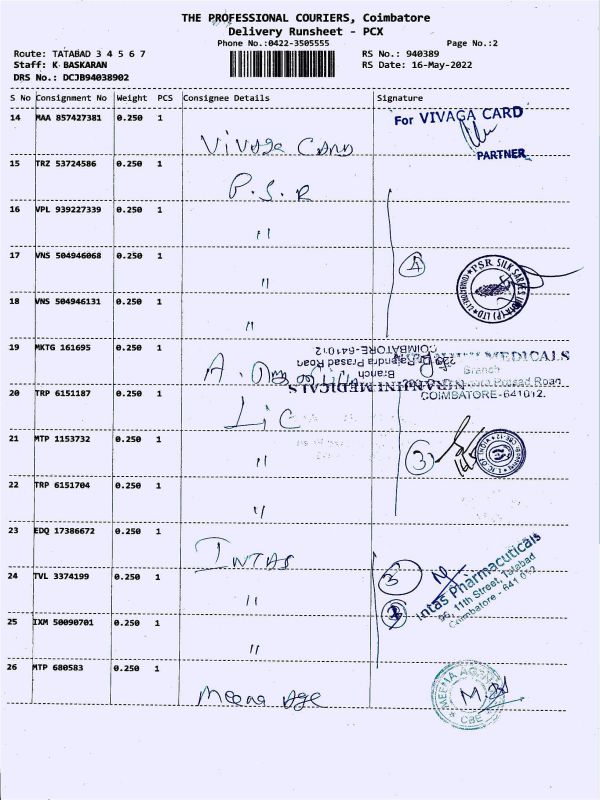 THE PROFESSIONAL COURIERS, Coimbatore
Delivery Runsheet - PCX
Phone No.:0422-3505555 Page No.:2
Route: TATABAD 3 4 5 6 7 RS No.: 940389
Staff: K BASKARAN RS Date: 16-May-2022
DRS No.: DCJB94038902
S No Consignment No Weight PCS Consignee Details Signature
14 MAA 857427381 0.250 1 Vivaga Card For VIVAGA CARD
PARTNER
15 TRZ 53724586 0.250 1 P.S.R
16 VPL 939227339 0.250 1 "
17 VNS 504946068 0.250 1 " 4 PSR SILK SAREES
18 VNS 504946131 0.250 1 "
19 MKTG 161695 0.250 1 A. NIRANJINI MEDICALS
Branch
Dr. Rajendra Prasad Road
COIMBATORE-641012.
20 TRP 6151187 0.250 1 Lic
21 MTP 1153732 0.250 1 " 3
22 TRP 6151704 0.250 1 "
23 EDQ 17386672 0.250 1 INTAS
24 TVL 3374199 0.250 1 " 3 Intas Pharmaceuticals
11th Street, Tatabad
Coimbatore - 641 012
25 IXM 50090701 0.250 1 "
26 MTP 680583 0.250 1 Meena Age MEENA AGENC
CBE